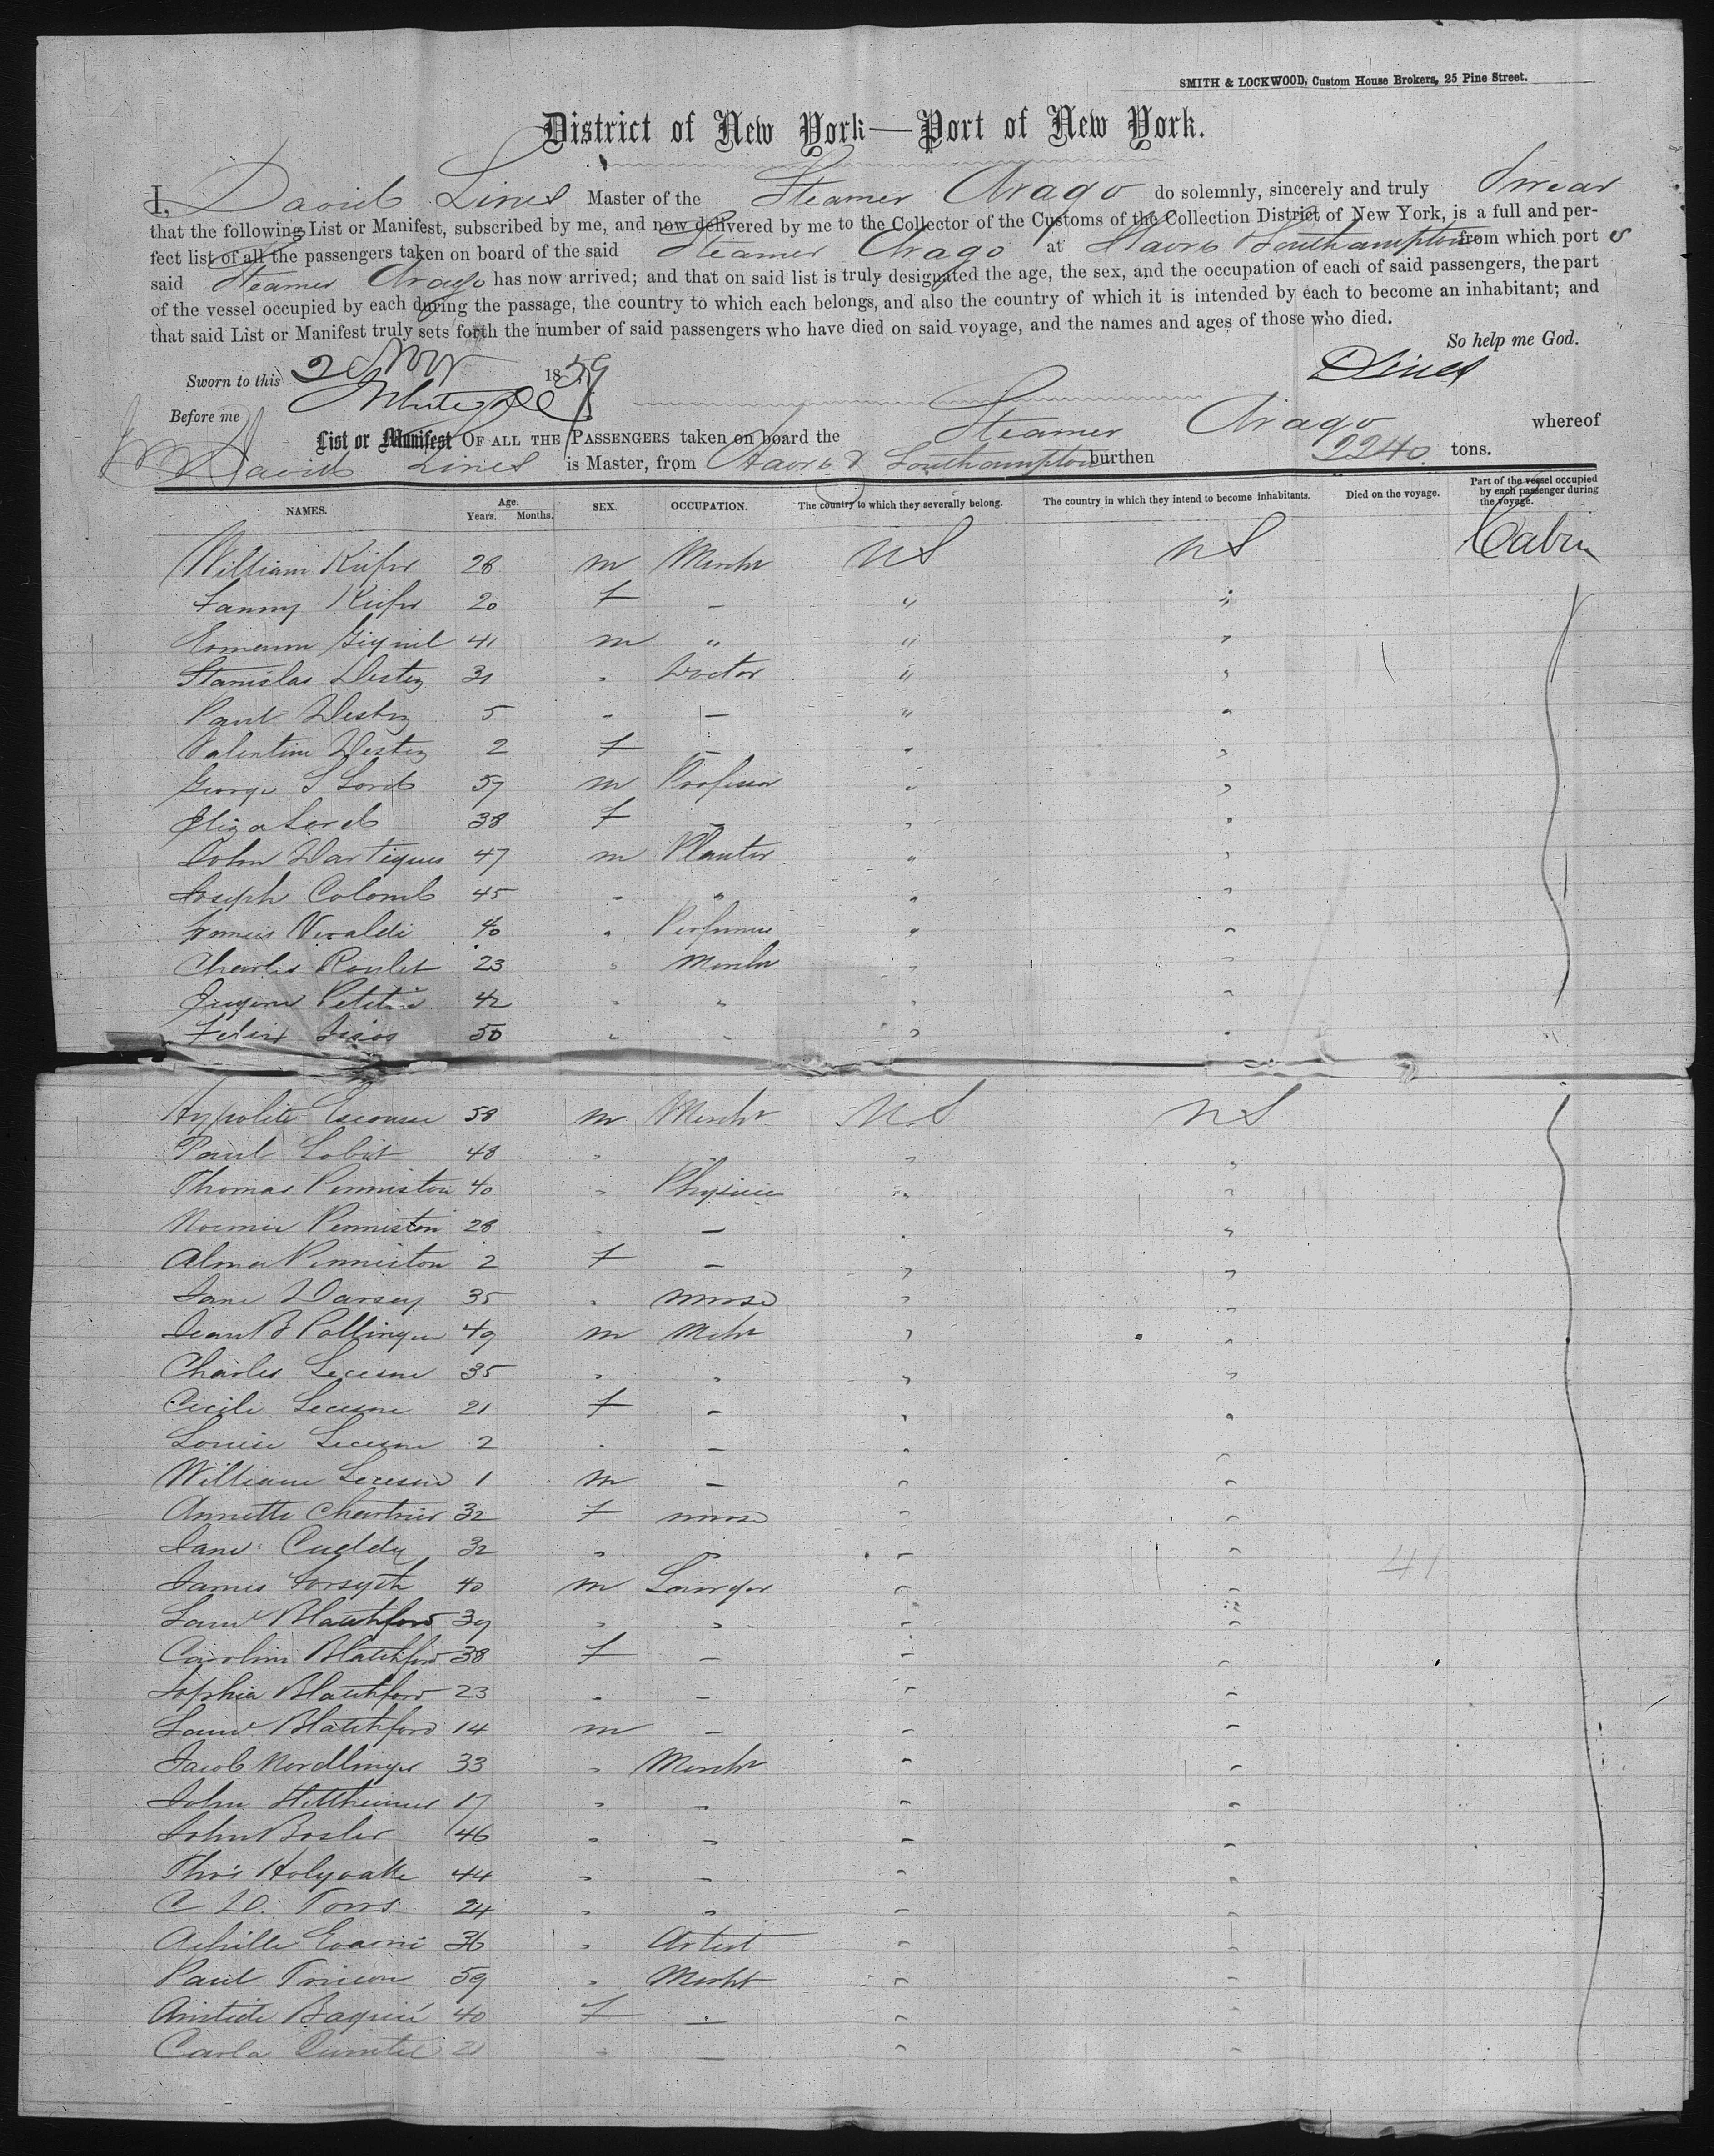 SMITH & LOCKWOOD, Custom House Brokers, 25 Pine Street.
District of New York—Port of New York.
I, David Lines Master of the Steamer Arago do solemnly, sincerely and truly Swear
that the following List or Manifest, subscribed by me, and now delivered by me to the Collector of the Customs of the Collection District of New York, is a full and per-
fect list of all the passengers taken on board of the said Steamer Arago at Havre & Southampton from which port s
said Steamer Arago has now arrived; and that on said list is truly designated the age, the sex, and the occupation of each of said passengers, the part
of the vessel occupied by each during the passage, the country to which each belongs, and also the country of which it is intended by each to become an inhabitant; and
that said List or Manifest truly sets forth the number of said passengers who have died on said voyage, and the names and ages of those who died.
So help me God.
Sworn to this 2 Nov 1859 D Lines
Before me
List or Manifest OF ALL THE PASSENGERS taken on board the Steamer Arago whereof
David Lines is Master, from Havre & Southampton burthen 2240 tons.
NAMES. Age. Years. Months. SEX. OCCUPATION. The country to which they severally belong. The country in which they intend to become inhabitants. Died on the voyage. Part of the vessel occupied by each passenger during the voyage.
William Kiefer 28 m Mercht US US Cabin
Fanny Kiefer 20 f — " "
41 m " " "
Stanislas Destez 31 " Doctor " "
Paul Destez 5 " — " "
Valentine Destez 2 f — " "
George S Lord 57 m Professor " "
Eliza Lord 38 f — " "
John Dartigues 47 m Planter " "
Joseph Colomb 45 " " " "
Francis Vivaldi 40 " Perfumer " "
Charles Roulet 23 " Mercht " "
Eugene Petit 42 " " " "
Felix 50 " " " "
Hypolite 58 m Mercht US US
Paul Lobit 48 " " " "
Thomas Penniston 40 " Physicie " "
Noemie Penniston 28 " — " "
Alma Penniston 2 f — " "
Jane Darsey 35 " nurse " "
Jean B 49 m Mcht " "
Charles Lecesne 35 " " " "
Cecile Lecesne 21 f — " "
Louise Lecesne 2 " — " "
William Lecesne 1 m — " "
Annette Chartrier 32 f nurse " "
Jane Cuddy 32 " " " "
James Forsyth 40 m Lawyer " " 41
Saml Blatchford 39 " " " "
Caroline Blatchford 38 f — " "
Sophia Blatchford 23 " — " "
Saml Blatchford 14 m — " "
Jacob Nordlinger 33 " Mercht " "
John 17 " — " "
John Bosler 46 " — " "
Thos Holyoake 44 " — " "
C D. Torrs 24 " " " "
Achille 36 " Artist " "
Paul 59 " Mercht " "
Aristide Baquié 40 f — " "
Carla 21 " — " "